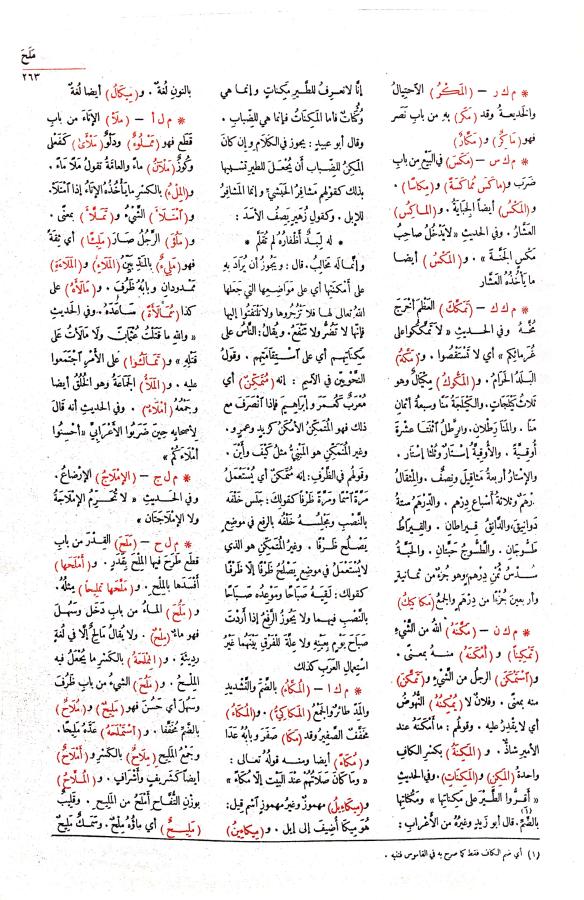 مَلَحَ
٢٦٣
* م ك ر – (المَكْرُ) الاحْتِيالُ
والخديعة وقد (مَكَرَ) به من باب نَصَر
فهو (مَاكِرٌ) و (مَكَّارٌ)
* م ك س – (مَكَسَ) في البَيْع من باب
ضرب و (ماكَسَ مُماكَسَةً) و (مِكاسًا) .
و (المَكْسُ) أيضاً الجِبَايَةُ . و (المَاكِسُ)
العَشَّار . وفي الحديث «لا يَدْخُلُ صاحِبُ
مَكْسٍ الجَنَّةَ» . و (المَكْسُ) أيضا
ما يأخُذُه العَشَّار
* م ك ك – (تَمَكَّكَ) العَظْمَ أخْرَجَ
مُخَّهُ وفي الحديث «لا تُمَكِّكُوا على
غُرَمائِكُم» أي لا تَسْتَقْصُوا . و (مَكَّةُ)
البَلَدُ الحَرامُ . و (المَكُّوكُ) مِكْيَالٌ وهو
ثلاثُ كَيْلَجَاتٍ . والكَيْلَجَةُ مَنًا وسبعة أثمان
مَنًا . والمَنَا رِطْلانِ . والرِّطْلُ اثْنَتَا عَشْرَة
أُوقِيَّة . والأُوقِيَّةُ إسْتَارٌ وثُلُثا إسْتَار .
والإسْتَارُ أربعةُ مَثَاقِيلَ ونِصْفٌ . والمِثْقالُ
دِرْهَمٌ وثلاثةُ أسْباعِ دِرْهَم . والدِّرْهَمُ ستةُ
دوانيق والدانِقُ قيراطان . والقيراطُ
طَسُّوجَان . والطَّسُّوجُ حَبَّتَان . والحَبَّةُ
سُدُسُ ثُمُنِ دِرْهمٍ وهو جزءٌ من ثمانية
وأربعين جُزْءا من دِرْهَمٍ والجمعُ (مَكاكِيكُ)
* م ك ن – (مَكَّنَهُ) اللهُ من الشَّيْءِ
(تَمْكِيناً) و (أَمْكَنَهُ) منه بمعنى .
و (اسْتَمْكَنَ) الرجلُ من الشَّيْءِ و (تَمَكَّنَ)
منه بمعنى . وفلانٌ لا (يُمْكِنُهُ) النُّهُوضُ
أي لا يَقْدِرُ عليه . وقولُهم : ما أَمْكَنَهُ عند
الأمير شاذٌّ . و (المَكِنَةُ) بكَسْرِ الكافِ
واحدةُ (المَكِنِ) و (المَكِنَاتِ) . وفي الحديث
«أَقِرُّوا الطَّيْرَ على مَكِناتِها» ومَكُناتِها
بالضَّمِّ(١). قال أبو زيد وغيرُهُ من الأعراب :
إنَّا لا نَعْرِفُ للطَّيرِ مَكِناتٍ وإنما هي
وُكُناتٌ فأما المَكِنَاتُ فإنما هي للضِّباب .
وقال أبو عبيد : يجوز في الكلام وإن كان
المَكْنُ للضِّباب أن يُجْعَلَ للطير تشبيها
بذلك كقولهم مَشَافِرُ الحَبَشِيِّ وإنما المَشَافِرُ
للإبل . وكقول زُهَيْرٍ يَصِفُ الأسَدَ :
* له لِبَدٌ أظفارُهُ لم تُقَلَّمِ *
وإنما له مَخالِبُ . قال : ويجوزُ أن يُرادَ به
على أمْكِنَتِها أي على مَواضِعِها التي جعلها
الله تعالى لها فلا تَزْجُرُوها ولا تَلْتَفِتُوا إليها
فإنها لا تَضُرُّ ولا تَنْفَعُ . ويقالُ: الناسُ على
مَكِناتِهِم أي على اسْتِقَامَتِهِم . وقولُ
النَّحْوِيِّين في الاسم : إنه (مُتَمَكِّنٌ) أي
مُعْرَبٌ كعُمَر وإبراهيم فإذا انْصَرَفَ مع
ذلك فهو المُتَمَكِّنُ الأَمْكَنُ كزيدٍ وعمرٍو .
وغيرُ المتمكِّن هو المَبْنِيُّ مثلُ كَيْفَ وأَيْنَ .
وقولهم في الظَّرْف: إنه مُتَمَكِّنٌ أي يُسْتَعْمَلُ
مَرَّةً اسْمًا ومَرَّةً ظَرْفًا كقولك: جَلَس خَلْفَه
بالنَّصْبِ ومَجْلِسُه خَلْفُه بالرفع في موضع
يَصْلُح ظَرْفًا . وغيرُ المتمكِّنِ هو الذي
لا يُسْتَعْمَلُ في موضعٍ يَصْلُحُ ظَرْفًا إلَّا ظَرْفًا
كقولك : لَقِيتُهُ صَبَاحًا ومَوْعِدُه صَبَاحًا
بالنَّصْبِ فيهما ولا يجوزُ الرَّفْعُ إذا أَرَدْتَ
صَبَاحَ يومٍ بِعَيْنِهِ ولا عِلَّةَ للفَرْقِ بَيْنَهُما غيرُ
استعمالِ العَرَبِ كذلك
* م ك ا – (المُكَّاءُ) بالضَّمِّ والتَّشْدِيدِ
والمَدِّ طائرٌ والجمْعُ (المَكَاكِيُّ) . و (المُكَاءُ)
مخَفَّفٌ الصَّفِيرُ وقد (مَكَا) صَفَرَ وبابُهُ عَدَا
و (مُكَاءً) أيضا ومنه قوله تعالى :
«وما كان صَلاتُهُم عند البيتِ إلّا مُكاءً»
و (مِيكائيل) مهموزٌ وغيرُ مهموزٍ اسمٌ قيل:
هُوَ مِيكَا أُضِيفَ إلى إيل . و (مِيكائِينُ)
بالنونِ لُغةٌ . و (مِيكَالُ) أيضا لُغَةٌ
* م ل أ – (مَلَأَ) الإناءَ من بابِ
قَطَعَ فهو (مَمْلُوءٌ) ودَلْوٌ (مَلْأَى) كفَعْلَى
وكُوزٌ (مَلْآنُ) ماءً والعامَّةُ تقولُ مَلَا مَاءً .
و (المِلْءُ) بالكَسْرِ ما يأخُذُهُ الإناءُ إذا امْتَلَأَ .
و (امْتَلَأَ) الشَّيْءُ و (تَمَلَّأَ) بمعنًى .
و (مَلُؤَ) الرَّجُلُ صَارَ (مَلِيئًا) أي ثِقَةً
فهو (مَلِيءٌ) بالمَدِّ بَيِّنُ (المَلَاءِ) و (المَلَاءَةِ)
ممدودان وبابُهُ ظَرُفَ . و (مَالَأَهُ) على
كذا (مُمَالَأَةً) سَاعَدَهُ . وفي الحديث
«واللهِ ما قَتَلْتُ عُثمانَ ولا مَالَأْتُ على
قَتْلِهِ» و (تَمالَئُوا) على الأَمْرِ اجْتَمَعُوا
عليه . و (المَلَأُ) الجماعَةُ وهو الخُلُقُ أيضا
وجمعُهُ (أَمْلَاءٌ) . وفي الحديث أنه قال
لأصحابه حين ضَرَبُوا الأعْرابيَّ «أَحْسِنُوا
أَمْلَاءَكُم»
* م ل ج – (الإمْلَاجُ) الإرْضَاعُ .
وفي الحديث «لا تُحَرِّمُ الإمْلَاجَةُ
ولا الإمْلَاجَتَان»
* م ل ح – (مَلَحَ) القِدْرَ من باب
قَطَعَ طَرَحَ فيها المِلْحَ بِقَدَرٍ . و (أَمْلَحَها)
أَفْسَدَها بالمِلْحِ . و (مَلَّحَها تمليحاً) مِثْلُهُ .
و (مَلُحَ) الماءُ من باب دَخَلَ وسَهُلَ
فهو ماءٌ (مِلْحٌ) . ولا يُقالُ مَالِحٌ إلَّا في لُغَةٍ
رَدِيئَةٍ . و (المِمْلَحَةُ) بالكَسْرِ ما يُجْعَلُ فيه
المِلْحُ . و (مَلُحَ) الشيءُ من باب ظَرُفَ
وسَهُلَ أي حَسُنَ فهو (مَلِيحٌ) و (مُلَاحٌ)
بالضمِّ مُخَفَّفا . و (اسْتَمْلَحَهُ) عَدَّهُ مَلِيحًا .
وجَمْعُ المَلِيحِ (مِلَاحٌ) بالكَسْرِ و (أَمْلَاحٌ)
أيضا كشَرِيفٍ وأَشْرَافٍ . و (المُلَّاحُ)
بوزن التُّفَّاح أَمْلَحُ من المَلِيح . وقَلِيبٌ
(مَلِيحٌ) أي ماؤُهُ مِلْحٌ . وسَمَكٌ مَلِيحٌ
(١) أي ضم الكاف فقط كما صرح به في القاموس فتنبه .